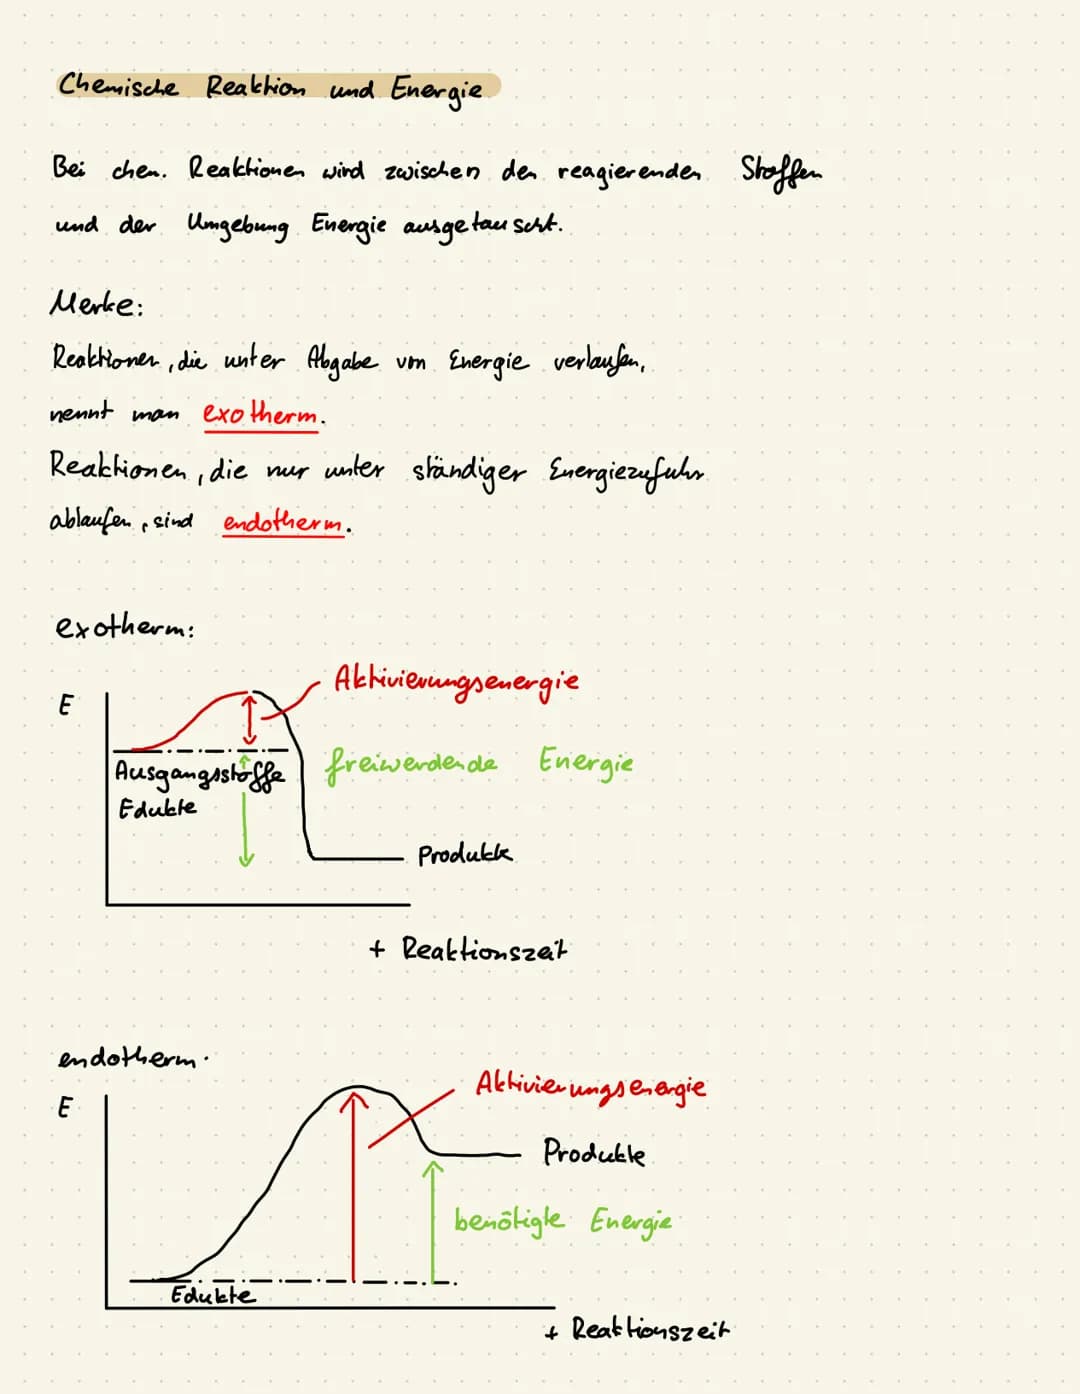 Chemische Reaktion und Energie
Bei chem. Reaktionen wird zwischen den reagierenden Stoffen
und der Umgebung Energie ausgetauscht.
Merke:
Reaktionen, die unter Abgabe von Energie verlaufen,
nennt man exotherm.
Reaktionen, die nur unter ständiger Energiezufuhr
ablaufen, sind endotherm.
exotherm:
E
Aktivierungsenergie
freiwerdende Energie
Ausgangsstoffe
Edukte
Produkte
t Reaktionszeit
endotherm.
E
Aktivierungsenergie
Produkte
benötigte Energie
Edukte
t Reaktionszeit